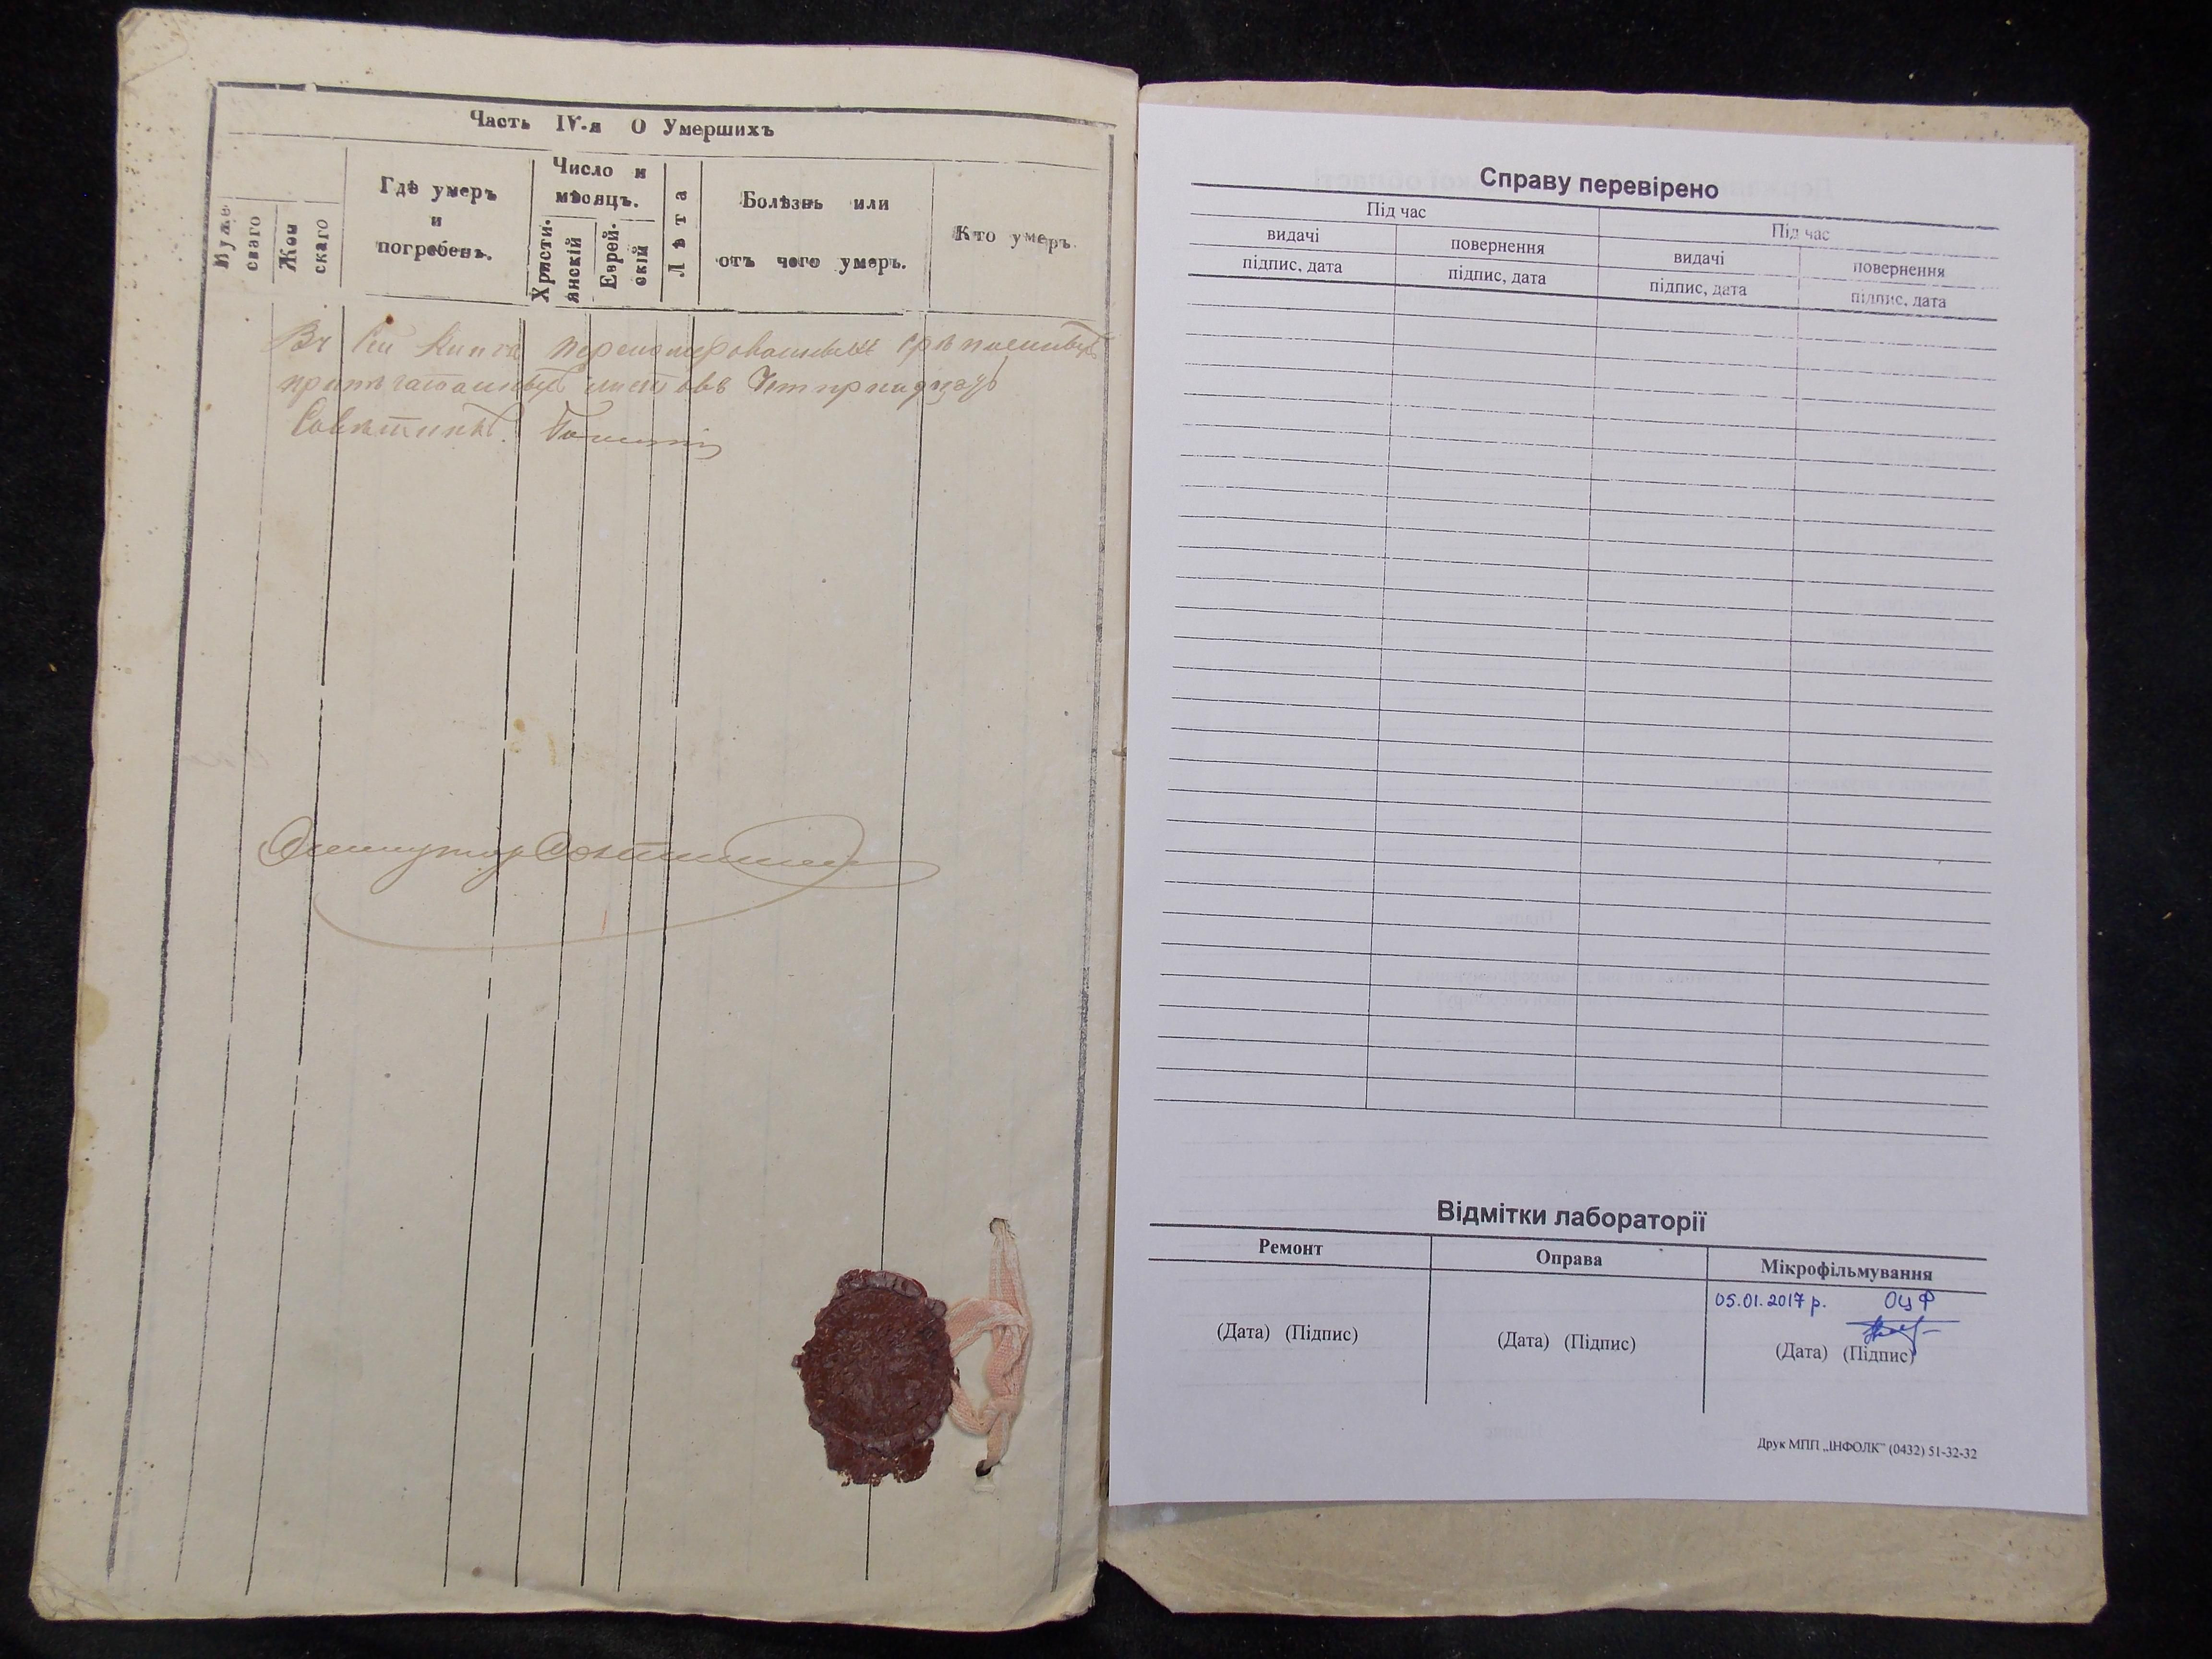 Часть IV-я О Умершихъ
Муже
скаго
Жен
скаго
Гдѣ умеръ
и
погребенъ.
Число и
мѣсяцъ.
Христи-
янскій
Еврей-
скій
Лѣта
Болѣзнь или
отъ чего умеръ.
Кто умеръ.
Въ сей книгѣ перенумерованныхъ
листовъ Четырнадцать
Совѣтникъ
Справу перевірено
Під час
Під час
видачі
повернення
видачі
повернення
підпис, дата
підпис, дата
підпис, дата
підпис, дата
Відмітки лабораторії
Ремонт
Оправа
Мікрофільмування
05.01.2017 р. ОЦФ
(Дата) (Підпис)
(Дата) (Підпис)
(Дата) (Підпис)
Друк МПП „ІНФОЛК" (0432) 51-32-32